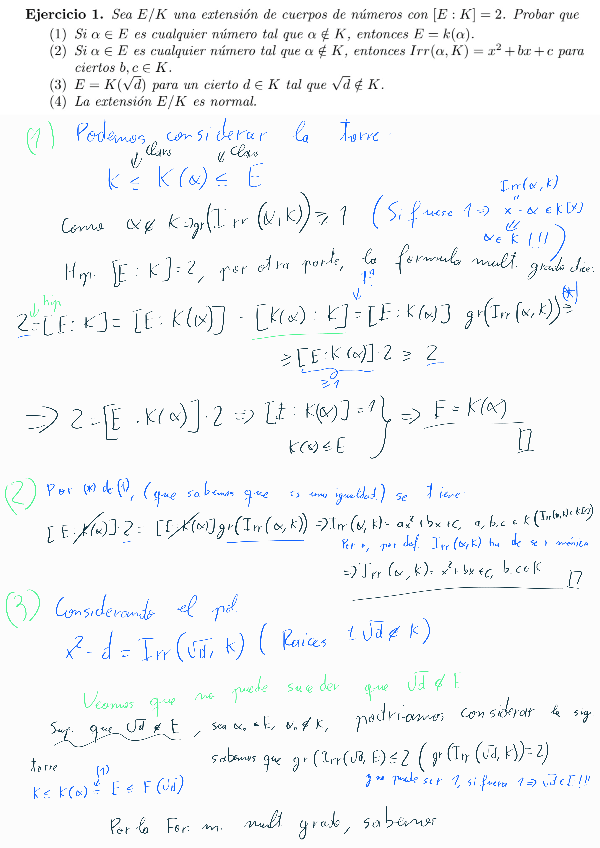 Ejercicio 1. Sea E/K una extensión de cuerpos de números con [E : K] = 2. Probar que
(1) Si α ∈ E es cualquier número tal que α ∉ K, entonces E = k(α).
(2) Si α ∈ E es cualquier número tal que α ∉ K, entonces Irr(α, K) = x² + bx + c para
ciertos b, c ∈ K.
(3) E = K(√d) para un cierto d ∈ K tal que √d ∉ K.
(4) La extensión E/K es normal.
(1) Podemos considerar la torre
↓ Claro ↙ Claro
K ≤ K(α) ≤ E
Irr(α, K)
Como α ∉ K => gr(Irr(α, K)) ≥ 1 (Si fuese 1 => x - α ∈ K[x]
α ∈ K !!!)
Hip. [E : K] = 2, por otra parte, la formula mult. grado dice:
↓ hip
2 = [E : K] = [E : K(α)] · [K(α) : K] = [E : K(α)] gr(Irr(α, K)) ≥ (*)
≥ [E : K(α)] · 2 ≥ 2
≥ 1
=> 2 = [E : K(α)] · 2 => [E : K(α)] = 1 } => E = K(α)
K(α) ≤ E
(2) Por (*) de (1), (que sabemos que es una igualdad) se tiene
[E : K(α)] · 2 = [E : K(α)] gr(Irr(α, K)) => Irr(α, K) = ax² + bx + c, a, b, c ∈ K (Irr(α, K) ∈ K[x])
Pero, por def. Irr(α, K) ha de ser mónico
=> Irr(α, K) = x² + bx + c, b, c ∈ K
(3) Considerando el pol.
x² - d = Irr(√d, K) (Raices ±√d ∉ K)
Veamos que no puede suceder que √d ∉ E
Sup. que √d ∉ E, sea α₀ ∈ E, α₀ ∉ K, podriamos considerar la sig
torre
sabemos que gr(Irr(√d, E)) ≤ 2 (gr(Irr(√d, K)) = 2)
(1)
K ≤ K(α) = E ≤ E(√d)
y no puede ser 1, si fuera 1 => √d ∈ E !!!
Por la For. m. mult grado, sabemos